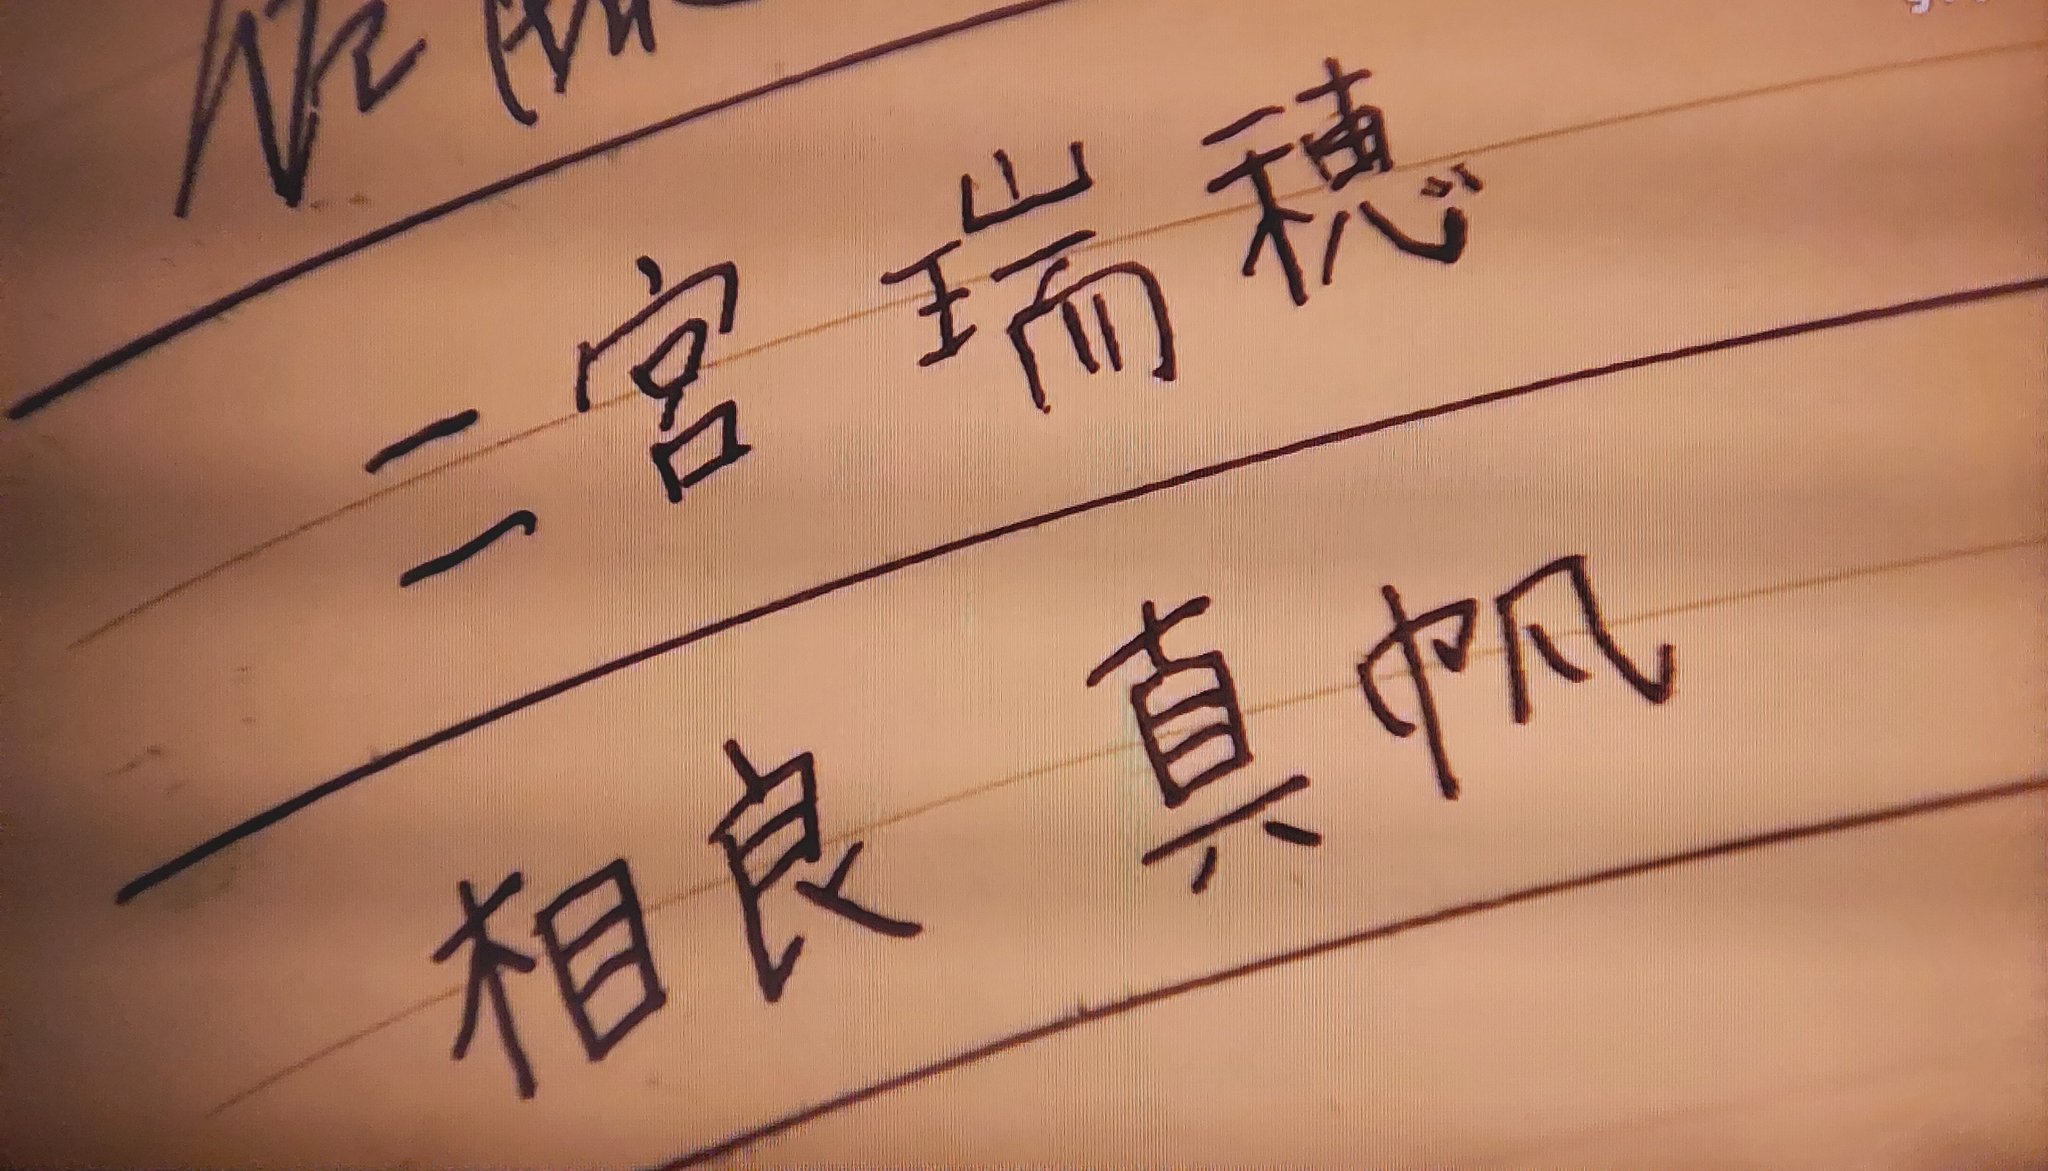 二宮瑞穂
相良 真帆